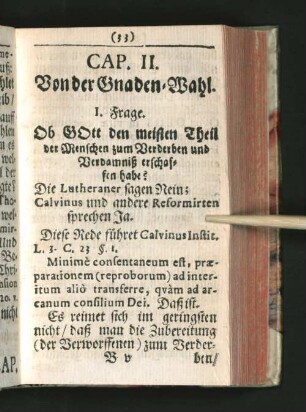 (33)
CAP. II.
Von der Gnaden-Wahl.
I. Frage.
Ob GOtt den meisten Theil
der Menschen zum Verderben und
Verdamniß erschaf-
fen habe?
Die Lutheraner sagen Nein;
Calvinus und andere Reformirten
sprechen Ja.
Diese Rede führet Calvinus Instit.
L. 3. C. 23 §. 1.
Minimè consentaneum est, præ-
parationem (reproborum) ad inter-
itum aliò transferre, qvàm ad ar-
canum consilium Dei. Das ist.
Es reimet sich im geringsten
nicht / daß man die Zubereitung
(der Verworffenen) zum Verder-
B v
ben/
AP.